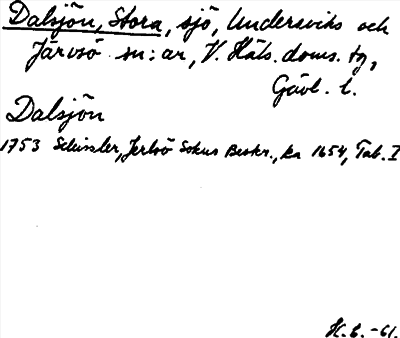 Dalsjön, Stora, sjö, Undersviks och
Järvsö sn:ar, V. Häls. doms. tg,
Gävl. l.
Dalsjön
1753 Schissler, Jerlsö Sokns Beskr., ka 1654, Tab. I
H.C. -61.